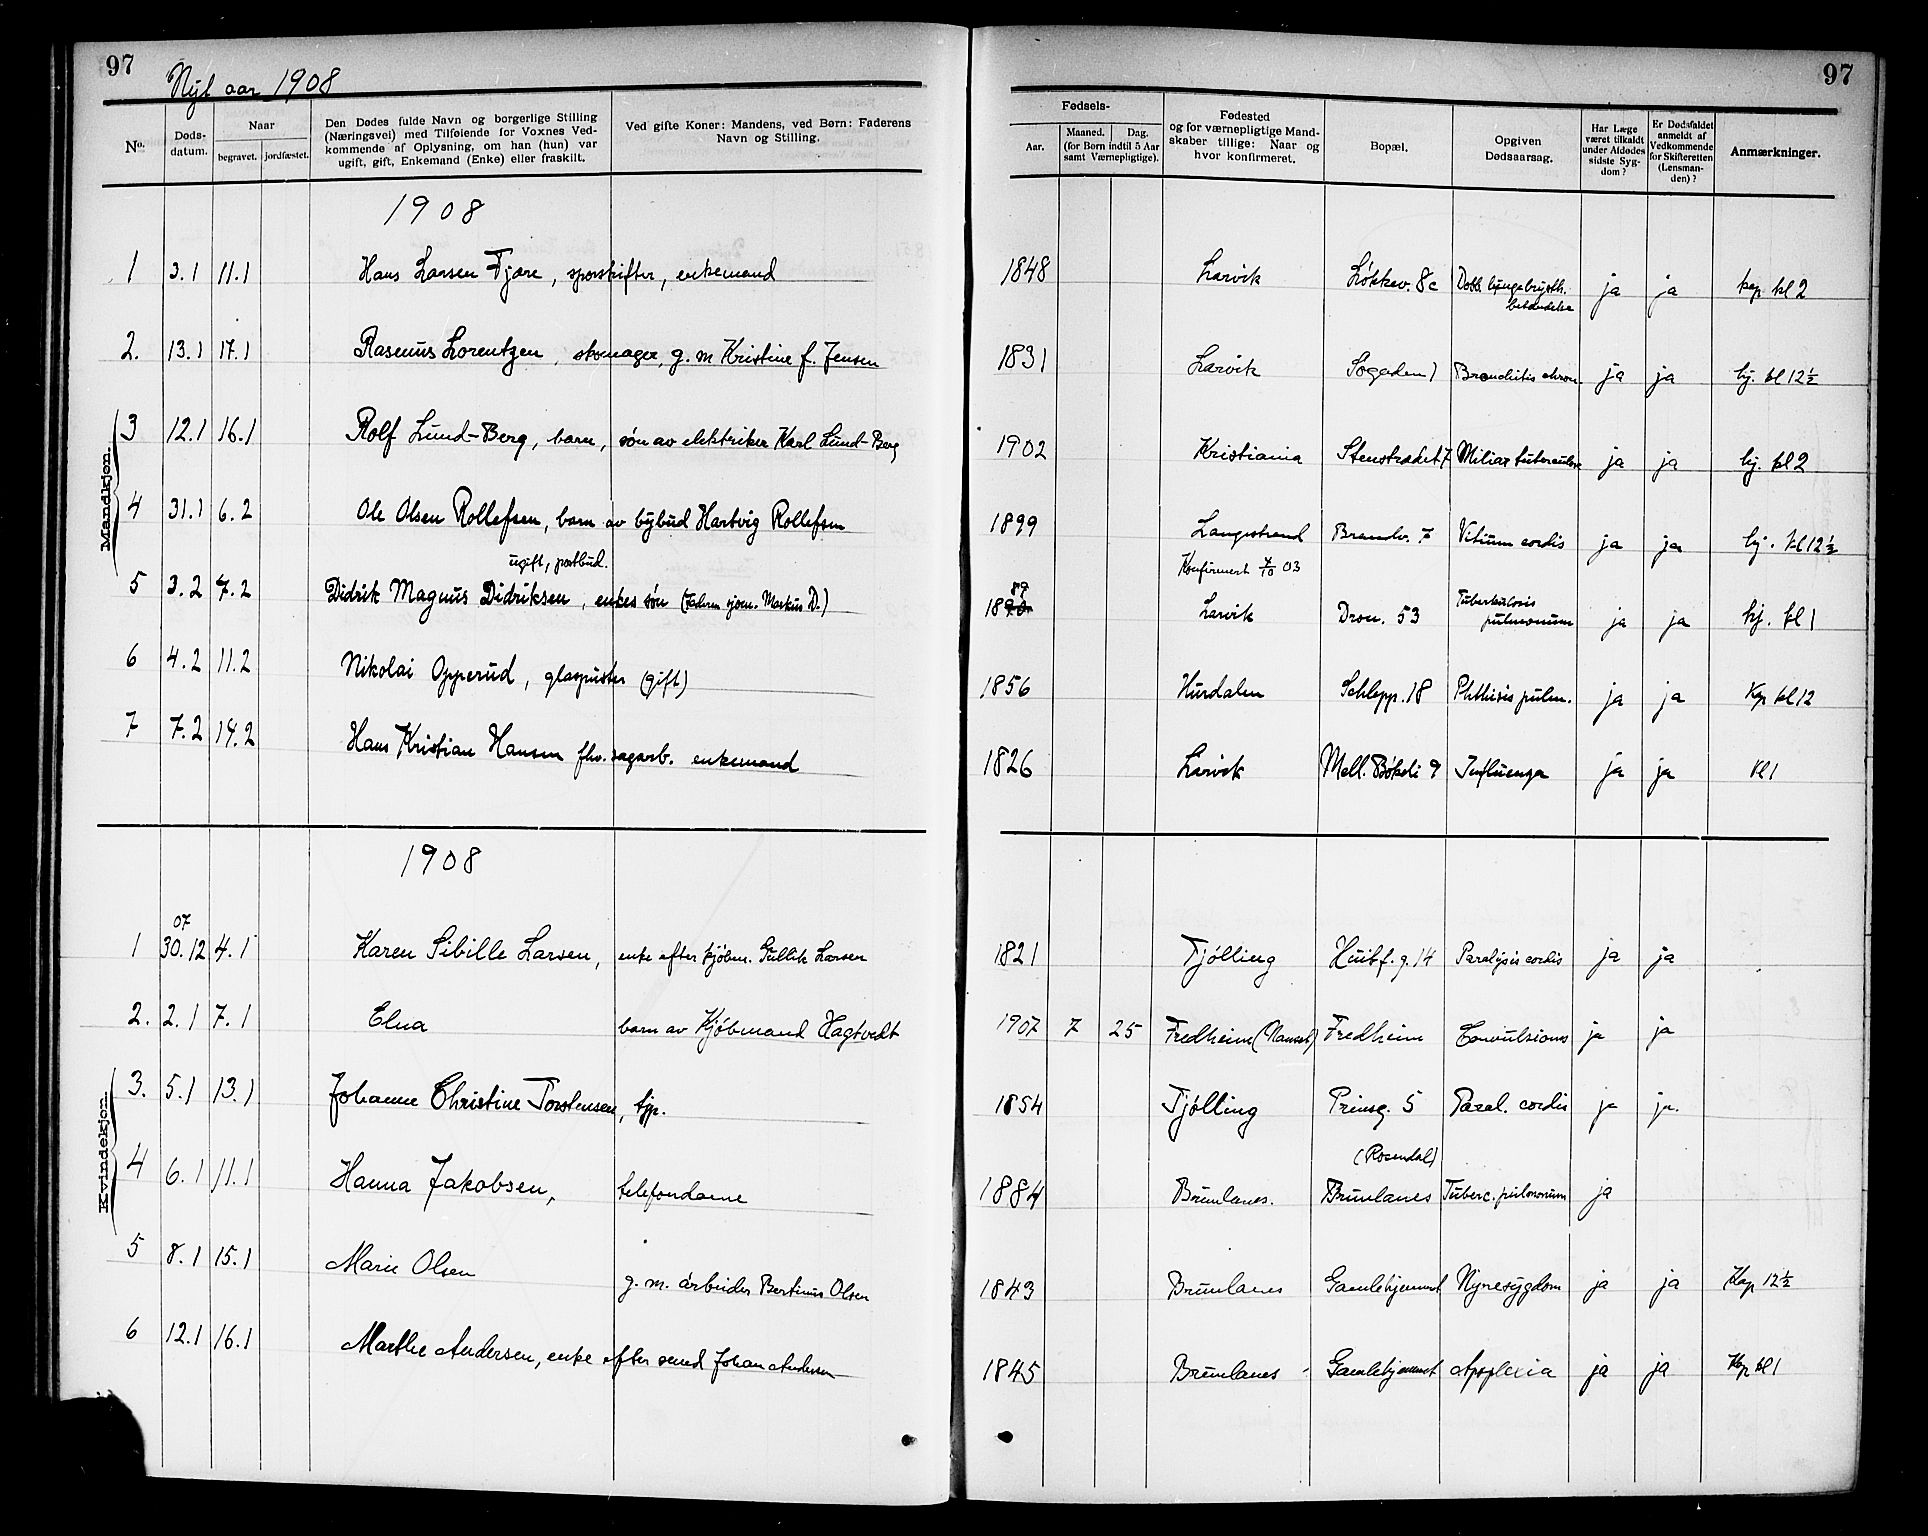 97
Nyt aar 1908
97
No. | Døds-datum. | Naar begravet. | jordfæstet. | Den Dødes fulde Navn og borgerlige Stilling (Næringsvei) med Tilføiende for Voxnes Vedkommende af Oplysning, om han (hun) var ugift, gift, Enkemand (Enke) eller fraskilt. | Ved gifte Koner: Mandens, ved Børn: Faderens Navn og Stilling. | Fødsels- Aar. | Maaned. | Dag. (for Børn indtil 5 Aar samt Værnepligtige). | Fødested og for værnepligtige Mandskaber tillige: Naar og hvor konfirmeret. | Bopæl. | Opgiven Dødsaarsag. | Har Læge været tilkaldt under Afdødes sidste Sygdom? | Er Dødsfaldet anmeldt af Vedkommende for Skifteretten (Lensmanden)? | Anmærkninger.
Mandkjøn.
1908
1 | 3.1 | 11.1 | Hans Larsen Fjære, sporskifter, enkemand | 1848 | Larvik | Løkkev. 8c | Dobb. | ja | ja | kap kl 2
2. | 13.1 | 17.1 | Rasmus Lorentzen, skomager, g. m Kristine f. Jensen | 1831 | Larvik | Søgaden 1 | Bronchitis chron. | ja | ja | kj. kl 12½
3 | 12.1 | 16.1 | Rolf Lund-Berg, barn, søn av elektriker Karl Lund-Berg | 1902 | Kristiania | Stenstrædet 7 | Miliær tuberculose | ja | ja | kj. kl 2
4 | 31.1 | 6.2 | Ole Olsen Rollefsen, barn av bybud Hartvig Rollefsen | 1899 | Langestrand | Brandv. 7 | Vitium cordis | ja | ja | kj. kl 12½
ugift, postbud. | Konfirmert 4/10 03
5 | 3.2 | 7.2 | Didrik Magnus Didriksen, enkes søn (Faderen sjøm. Markus D.) | 1890 89 | Larvik | Dron. 53 | Tuberkulosis pulmonum | ja | ja | kj. kl 1
6 | 4.2 | 11.2 | Nikolai Opperud, glaspuster (gift) | 1856 | Hurdalen | Schlepp. 18 | Phthisis pulm. | ja | ja | Kap kl 12
7 | 7.2 | 14.2 | Hans Kristian Hansen fhv. sagarb. enkemand | 1826 | Larvik | Mell. Bøkeli 9 | Influenza | ja | ja | kl 1
Kvindekjøn.
1908
1 | 07 30.12 | 4.1 | Karen Sibille Larsen, | enke efter kjøbm. Gullik Larsen | 1821 | Tjølling | Huitf. g. 14 | Paralysis cordis | ja | ja
2. | 2.1 | 7.1 | Elna | barn av Kjøbmand Hagtvedt | 1907 | 7 | 25 | Fredheim | Fredheim | Convulsions | ja | ja
3. | 5.1 | 13.1 | Johanne Christine Torstensen, tjp. | 1854 | Tjølling | Prinsg. 5 | Paral. cordis | ja | ja.
4 | 6.1 | 11.1 | Hanna Jakobsen, | telefondame | 1884 | Brunlanes. | (Rosendal) Brunlanes | Tuberc. pulmonum | ja
5 | 8.1 | 15.1 | Marie Olsen | g. m. arbeider Bertinus Olsen | 1843 | Brunlanes | Gamlehjemmet | Nyresygdom | ja | ja | Kap 12½
6 | 12.1 | 16.1 | Marthe Andersen, enke efter smed Johan Andersen | 1845 | Brunlanes | Gamlehjemmet | Apoplexia | ja | ja | Kap kl 1